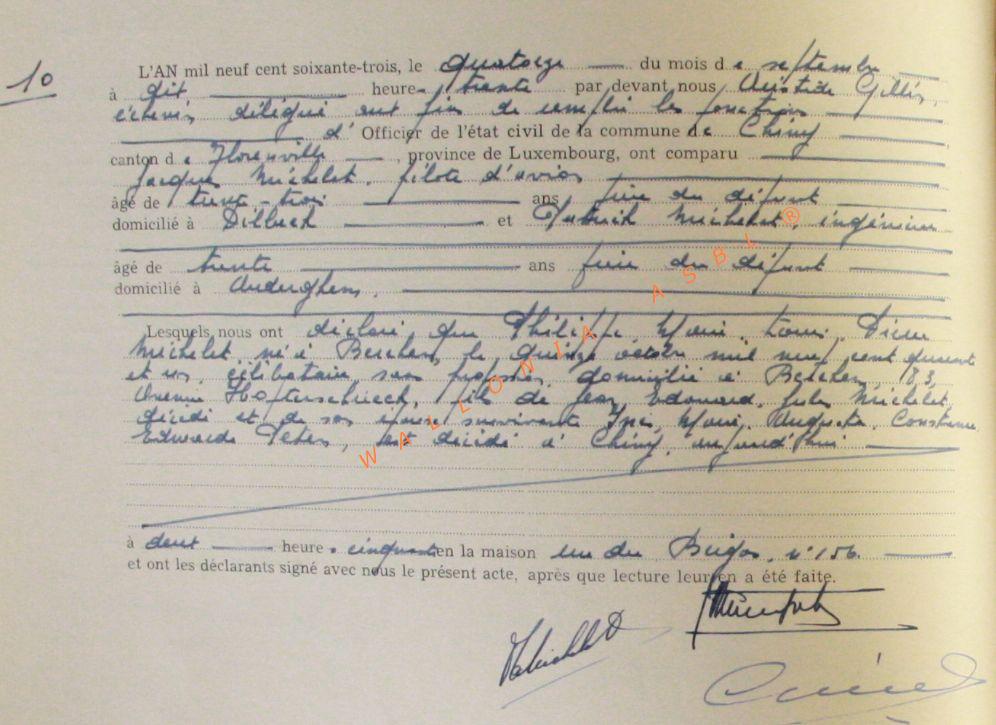 10
L'AN mil neuf cent soixante-trois, le quatorze du mois de septembre
à dix heures trente par devant nous Aristide Gillis,
échevin délégué aux fins de remplir les fonctions
d'Officier de l'état civil de la commune de Chiny
canton de Florenville, province de Luxembourg, ont comparu
Jacques Michelet, pilote d'avion
âgé de trente-trois ans frère du défunt
domicilié à Dilbeek et Patrick Michelet, ingénieur
âgé de trente ans frère du défunt
domicilié à Auderghem.
Lesquels nous ont déclaré que Philippe Marie Louis
Michelet né à Berchem le quinze octobre mil neuf cent quarante
et un, célibataire, sans profession, domicilié à Berchem, 83,
Avenue fils de Jean, Edouard, Jules Michelet,
décédé et de son épouse survivante Marie, Augusta, Constance
Peters, est décédé à Chiny, aujourd'hui
à deux heures cinquante en la maison rue du n° 156.
et ont les déclarants signé avec nous le présent acte, après que lecture leur en a été faite.
WALLONIA ASBL ®